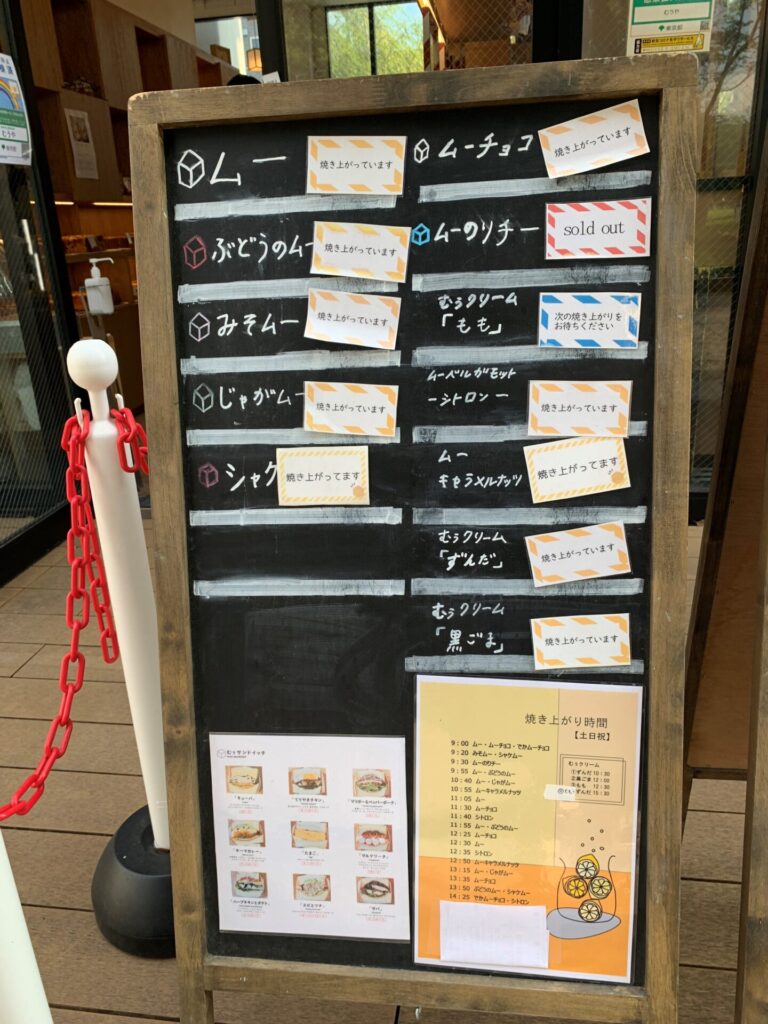 ムー 焼き上がっています
ぶどうのムー 焼き上がっています
みそムー 焼き上がっています
じゃがムー 焼き上がっています
シャケ 焼き上がってます
ムーチョコ 焼き上がっています
ムーのりチー sold out
むぅクリーム
「もも」
次の焼き上がりを
お待ちください
ムーベルガモット
ーシトロンー
焼き上がっています
ムー
キャラメルナッツ
焼き上がってます
むぅクリーム
「ずんだ」
焼き上がっています
むぅクリーム
「黒ごま」
焼き上がっています
むぅサンドイッチ
「キューバ」
「てりやきチキン」
「キーマカレー」
「たまご」
「サバ」
焼き上がり時間
【土日祝】
9:00 ムー・ムーチョコ・でかムーチョコ
9:20 みそムー・シャケムー
9:30 ムーのりチー
9:55 ムー・ぶどうのムー
10:40 ムー・じゃがムー
10:55 ムーキャラメルナッツ
11:05 ムー
11:30 ムーチョコ
11:40 シトロン
11:55 ムー・ぶどうのムー
12:25 ムーチョコ
12:30 ムー
12:35 シトロン
12:50 ムーキャラメルナッツ
13:15 ムー・じゃがムー
13:35 ムーチョコ
13:50 ぶどうのムー・シャケムー
14:25 でかムーチョコ・シトロン
むぅクリーム
①ずんだ 10:30
②黒ごま 12:00
③もも 12:30
ずんだ 15:30
むうや
東京都
むうや